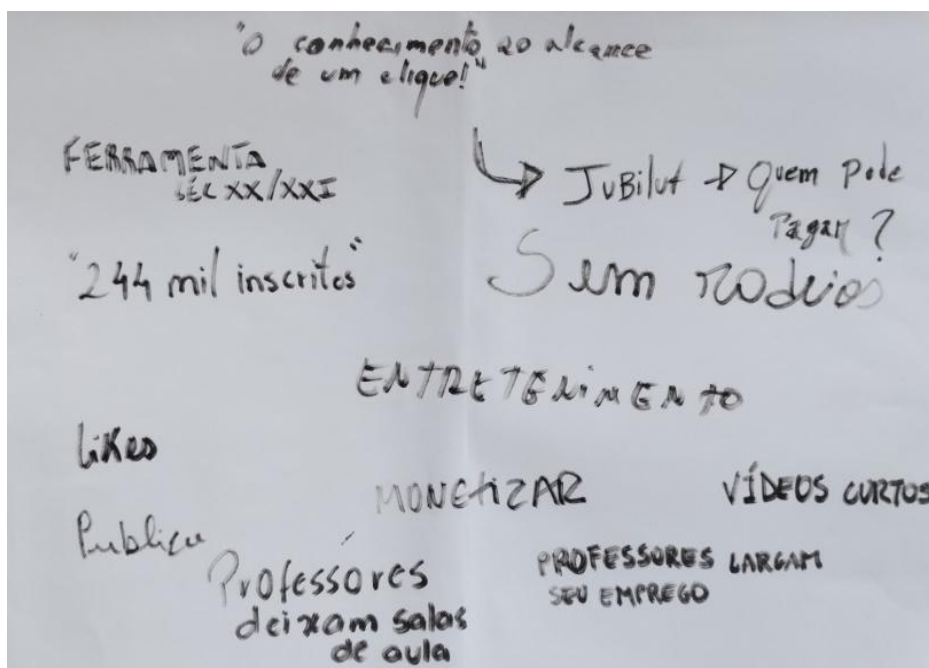 "O conhecimento ao alcance
de um clique!"
FERRAMENTA
SÉC XX/XXI
JUBilut → Quem Pode
Pagar?
"244 mil inscritos"
Sem rodeios
ENTRETENIMENTO
Likes
MONETIZAR
VÍDEOS CURTOS
Publicu
Professóres
deixam salas
de aula
PROFESSORES LARGAM
SEU EMPREGO